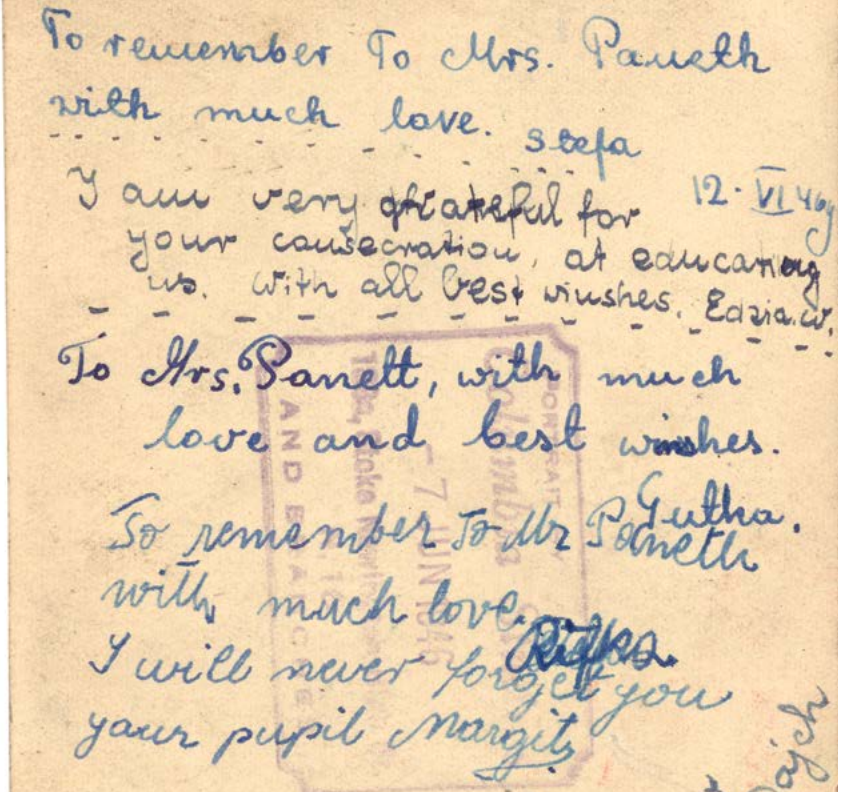 To remember To Mrs. Paneth
with much love. Stefa
12. VI 46y
I am very grateful for
your consecration, at educating
us. with all best wiushes. Edzia.W.
To Mrs. Panett, with much
love and best wishes.
Gutha.
To remember To Mr Paneth
with much love.
Rifka.
I will never forget you
your pupil Margit
PORTRAIT
7 JUN 1946
AND B